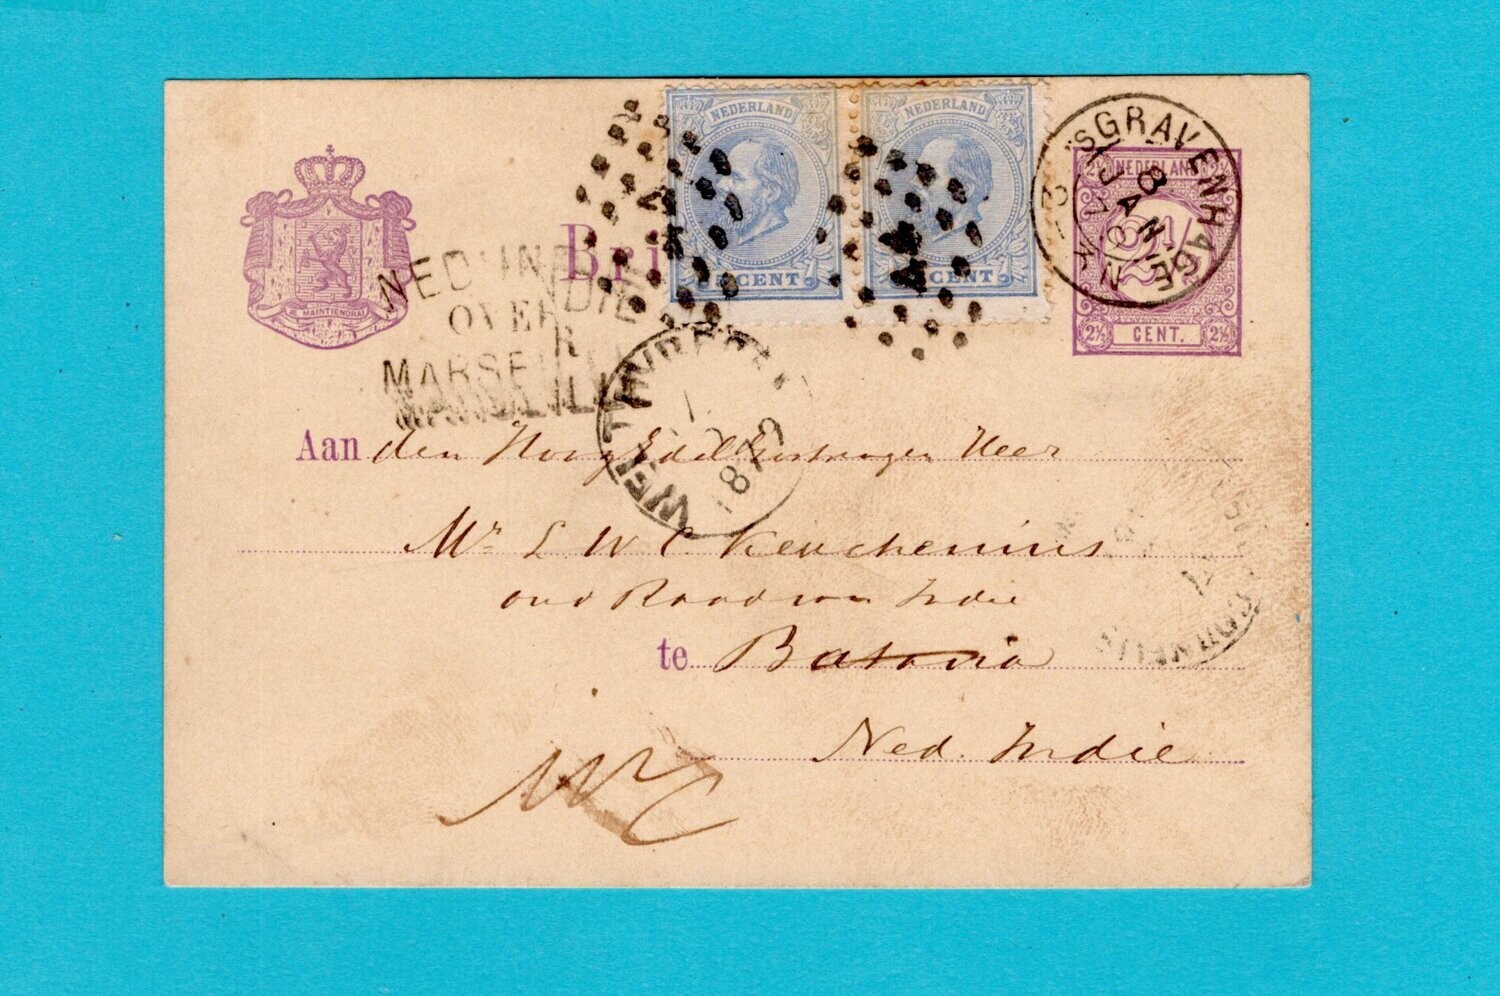 NEDERLAND
NEDERLAND
5 CENT
5 CENT
'SGRAVENHAGE
8 JAN
79
NEDERLAND
2½ 2½
2½
2½ CENT. 2½
JE MAINTIENDRAI
Bri
NED INDIE
OVER
MARSEILLE
WELTEVREDEN
1879
Aan den HoogEdelGestrengen Heer
Mr L W C Keuchenius
oud Raad van Indie
te Batavia
Ned. Indie